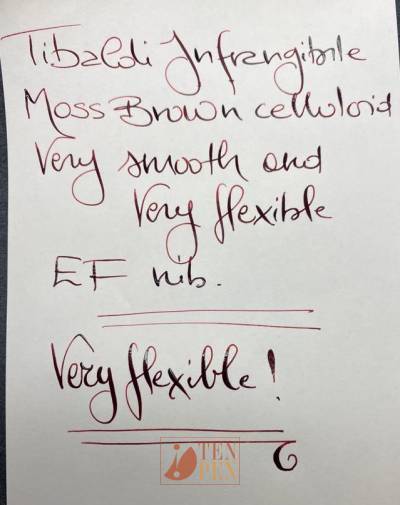 Tibaldi Infrangibile
Moss Brown celluloid
Very smooth and
Very flexible
EF nib.
Very flexible!
TEN
PEN